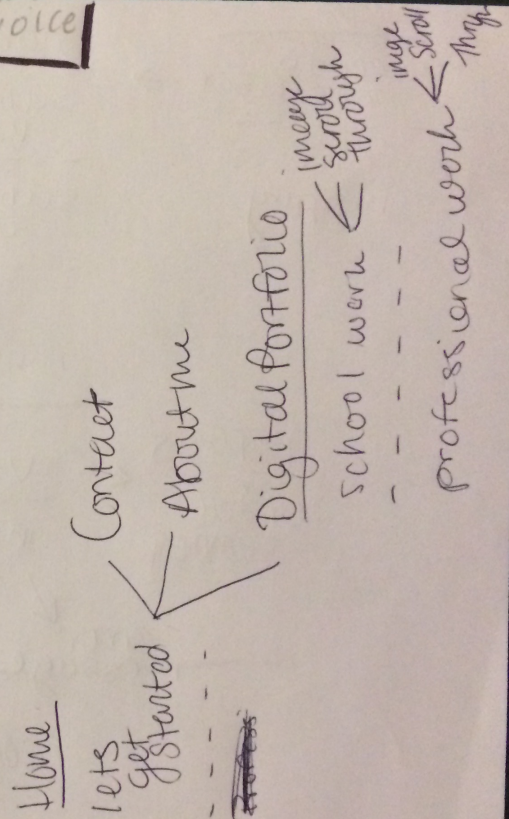 oice
Home
lets
get
started
Contact
About me
Digital Portfolio
school work
image
Scroll
through
professional work
image
Scroll